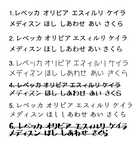 1.レベッカ オリビア エスィルリ ケイラ
メディスン ほし しあわせ あい さくら
2.レベッカ オリビア エスィルリ ケイラ
メディスン ほし しあわせ あい さくら
3.レベッカ オリビア エスィルリ ケイラ
メディスン ほし しあわせ あい さくら
4.レベッカ オリビア エスィルリ ケイラ
メディスン ほし しあわせ あい さくら
5.レベッカ オリビア エスィルリ ケイラ
メディスン ほし しあわせ あい さくら
6.レベッカ オリビア エスィルリ ケイラ
メディスン ほし しあわせ あい さくら